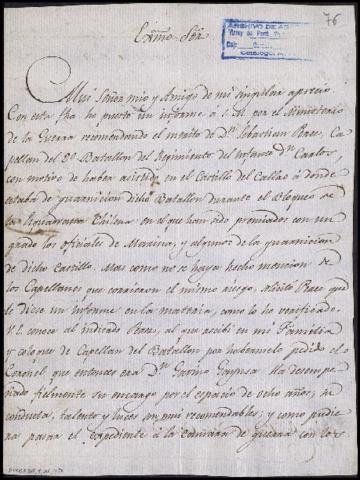 76
ARCHIVO DE
Exmo. Sõr.
Mui Señor mio y Amigo de mi singular aprecio
Con esta fha he puesto un informe á S.M. por el Ministerio
de la Guerra recomendando el merito de Dn. Sebastian Raez, Ca
pellan del 2º Batallon del Regimiento del Infante Dn. Carlos,
con motivo de haver asistido en el Castillo del Callao á donde
estaba de guarnicion dicho Batallon durante el Bloqueo de
la Esquadra Chilena en el que han sido premiados con un
grado los oficiales de Marina, y algunos de la guarnicion
de dicho Castillo. Mas como no se haya hecho mencion de
los Capellanes que corrieron el mismo riesgo, solicitó Raez que
le diese un informe en la materia, como lo he verificado.
V.E. conoce al indicado Raez, al que recibí en mi Familia
y coloque de Capellan del Batallon por habermelo pedido el
Coronel que entonces era Dn. Gavino Gaynza. Ha desempe
ñado fielmente su encargo por el espacio de ocho años; su
conducta, talento y luces son mui recomendables; y como pudie
ra pasar el expediente á la Camara de guerra con los